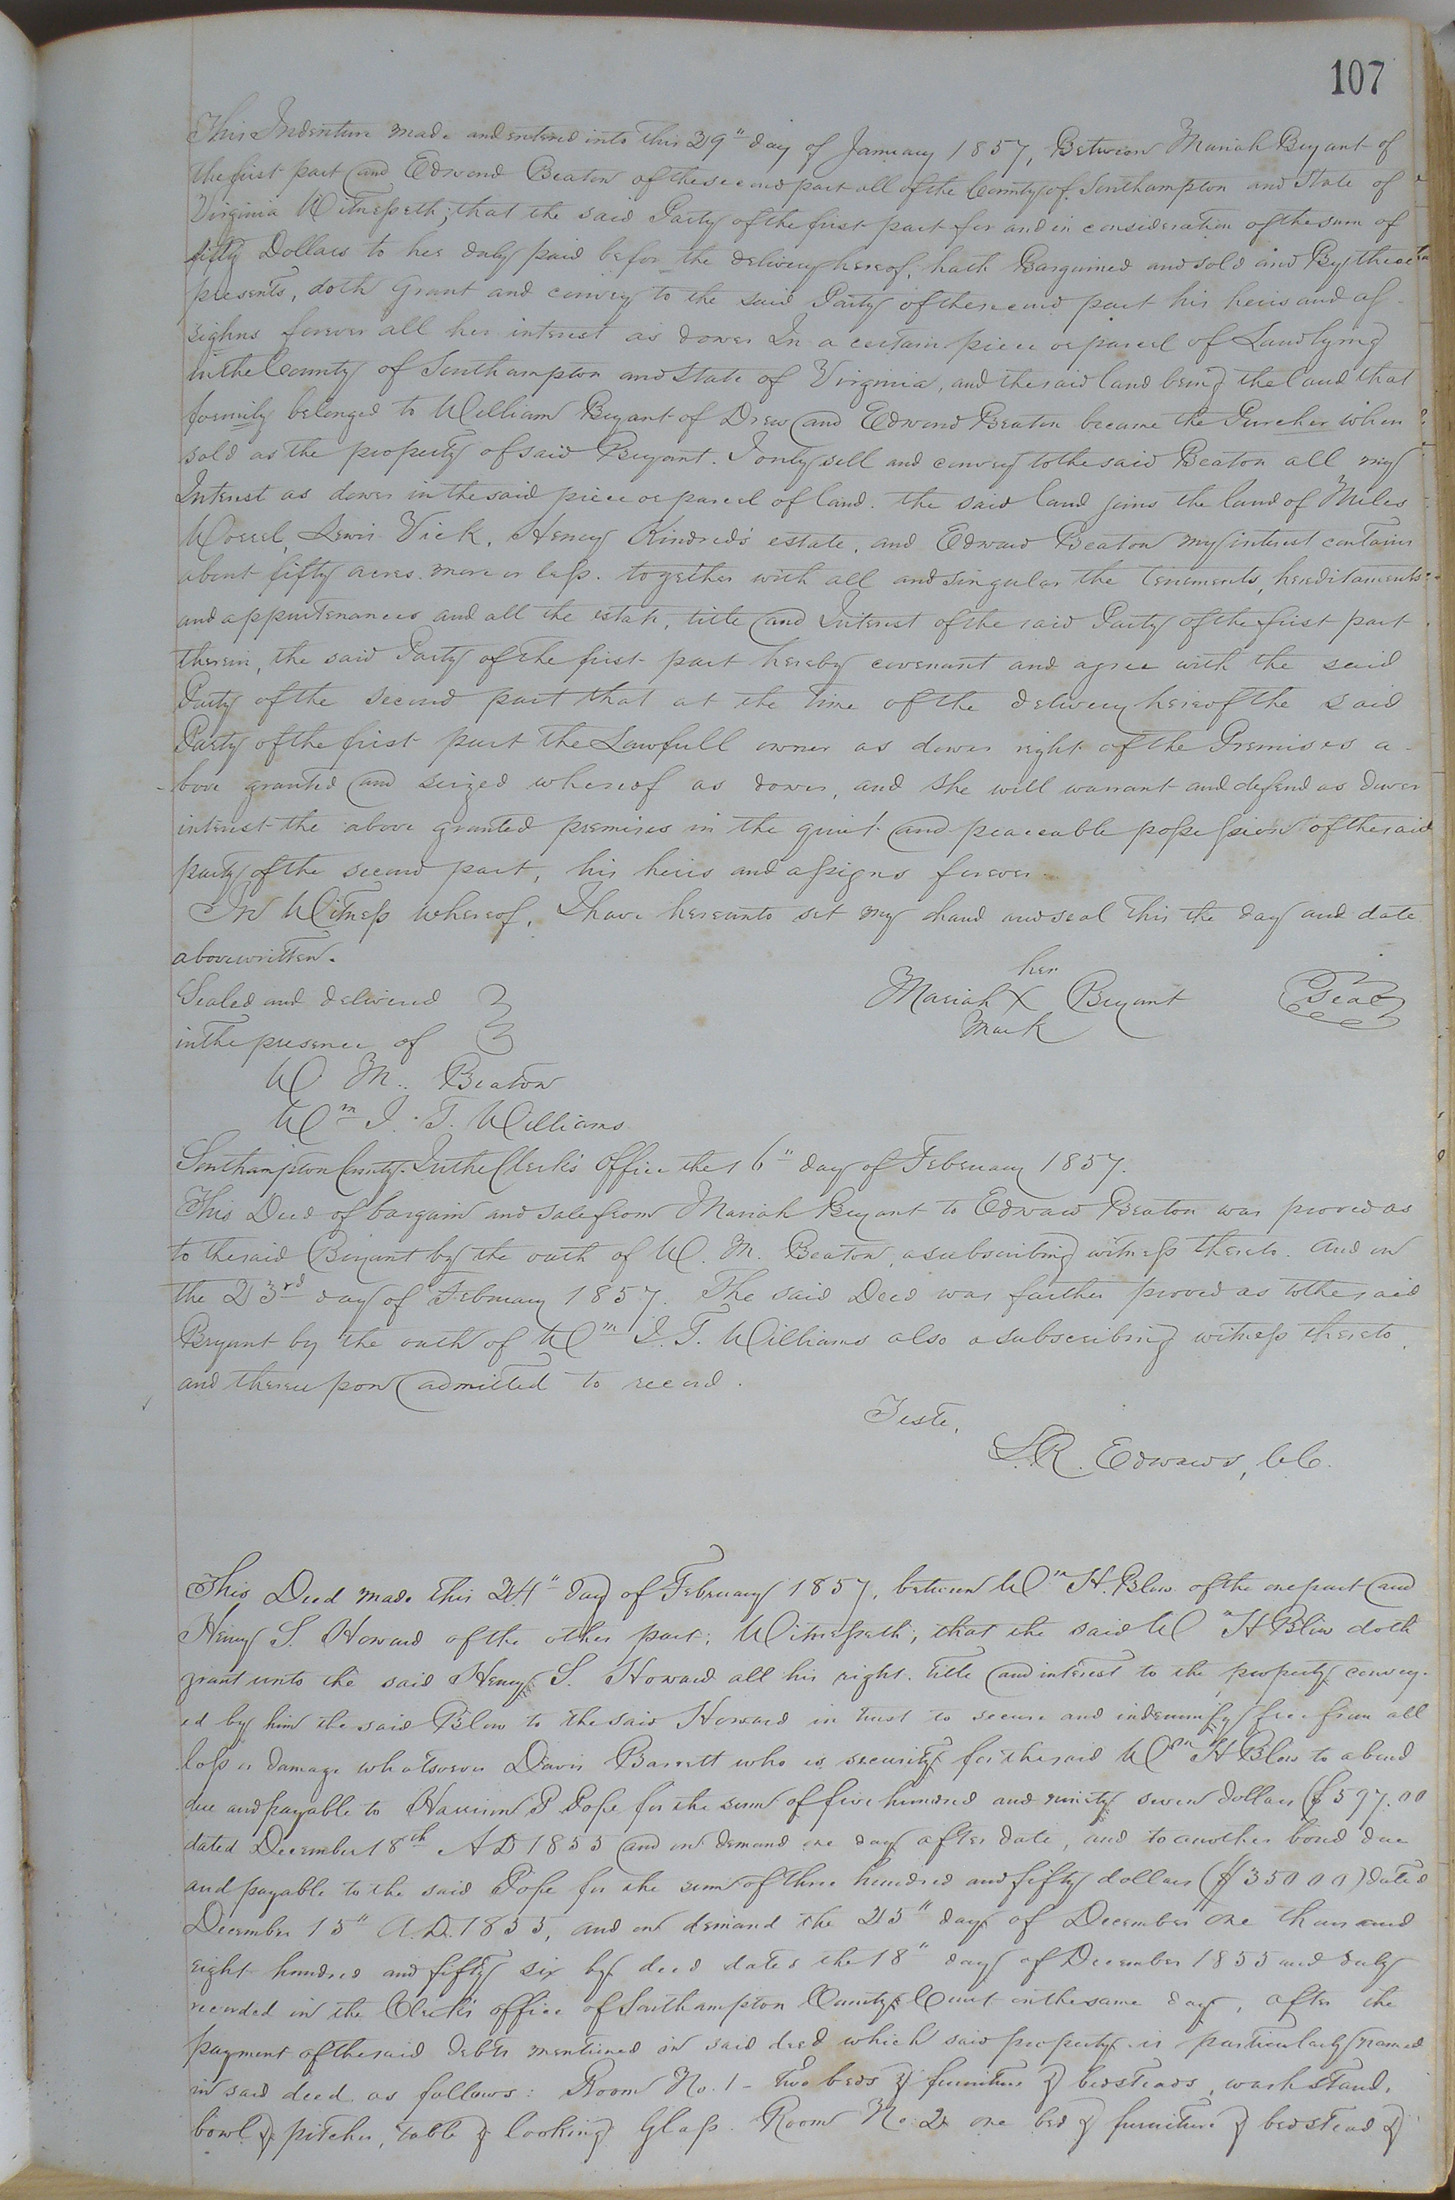 107
This Indenture made and entered into this 29" day of January 1857, Between Mariah Bryant of
the first part and Edward Beaton of the second part all of the County of Southampton and State of
Virginia Witnesseth; that the said Party of the first part for and in consideration of the sum of
fifty Dollars to her duly paid befor the delivery hereof, hath Bargained and sold and By these
presents, doth Grant and convey to the said Party of the second part his heirs and as-
sighns forever all her interest as dower In a certain piece or parcel of Land lying
in the County of Southampton and State of Virginia, and the said land being the land that
formily belonged to William Bryant of Drew and Edward Beaton became the Purcher when
sold as the property of said Bryant. I only sell and convey to the said Beaton all my
Interest as dower in the said piece or parcel of land. the said land joins the land of Miles
Worrel, Lewis Vick, Henry Kindred's estate, and Edward Beaton my interest contains
about fifty acres more or less. together with all and singular the tenements, hereditaments
and appurtenances and all the estate, title and Interest of the said Party of the first part
therein, the said Party of the first part hereby covenant and agree with the said
Party of the second part that at the time of the delivery hereof the said
Party of the first part the Lawfull owner as dower right of the Premises a-
bove granted and seized whereof as dower, and she will warrant and defend as dower
interest the above granted premises in the quiet and peaceable possession of the said
party of the second part, his heirs and assigns forever.
In Witness whereof, I have hereunto set my hand and seal this the day and date
above written.
Sealed and delivered
in the presence of
her
Mariah X Bryant Seal
Mark
W. M. Beaton
Wm J. T. Williams
Southampton County. In the Clerk's Office the 16" day of February 1857.
This Deed of bargain and sale from Mariah Bryant to Edward Beaton was proved as
to the said Bryant by the oath of W. M. Beaton, a subscribing witness thereto. And on
the 23rd day of February 1857. The said Deed was further proved as to the said
Bryant by the oath of Wm J. T. Williams also a subscribing witness thereto,
and thereupon admitted to record.
Teste,
L. R. Edwards, C.C.
This Deed made this 24" day of February 1857, between Wm H. Blow of the one part and
Henry S. Howard of the other part; Witnesseth, that the said Wm H Blow doth
grant unto the said Henry S. Howard all his right. title and interest to the property convey-
ed by him the said Blow to the said Howard in trust to secure and indemnify free from all
loss or damage whatsoever Davis Barrett who is security for the said Wm H Blow to a bond
due and payable to Harrison P Pope for the sum of five hundred and ninety seven dollars ($597.00
dated December 18th AD 1855 and on demand one day after date, and to another bond due
and payable to the said Pope for the sum of three hundred and fifty dollars ($350 00) dated
December 15" A.D. 1855, and on demand the 25" day of December one thousand
eight hundred and fifty six by deed dated the 18" day of December 1855 and duly
recorded in the Clerk's office of Southampton County Court on the same day, after the
payment of the said debts mentioned in said deed which said property is particularly named
in said deed as follows: Room No. 1 - two beds & furniture & bedsteads, wash stand,
bowl & pitcher, table & looking Glass. Room No. 2 one bed & furniture & bedstead &